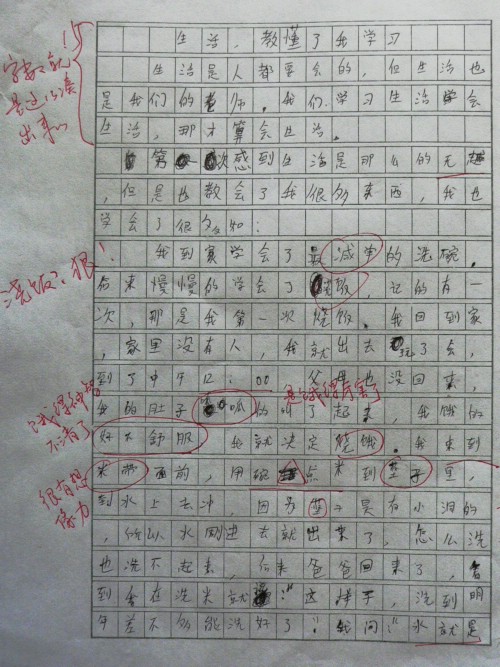 生活，教懂了我学习
生活是人都要会的，但生活也
是我们的老师。我们学习生活学会
生活，那才算会生活。
第 次感到生活是那么的无趣
，但是也教会了我很多东西，我也
学会了很多知：
我到家学会了最减单的洗碗。
后来慢慢的学会了烧饭，记的有一
次，那是我第一次烧饭。我回到家
，家里没有人，我就出去玩了会，
到了中午12：00 父母也没回来，
我的肚子 呱 叫了起来，我饿的
好不舒服 我就决定烧饿。我来到
米 面前，用碗 点米到 子里，
到水上去冲，因为 子是有小洞的
，所以水刚进去就出来了，怎么洗
也洗不起去，后来爸爸回来了，看
到会在洗米就 ："这样子，洗到明
年差不多能洗好了"我问："水就是
字数 就
是 以凑
出来
浇饭？狠！
是饿得厉害了
饿得神智
不清了
很有想
像力